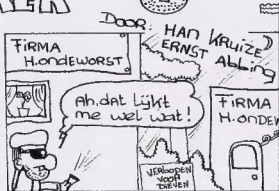 Door: HAN KRUIZE?
ERNST Abbing
FiRMA
H.ONDEWORST
Ah, dat lijkt
me wel wat!
FiRMA
H.ONDEW
VERBODEN
VOOR
DIEVEN